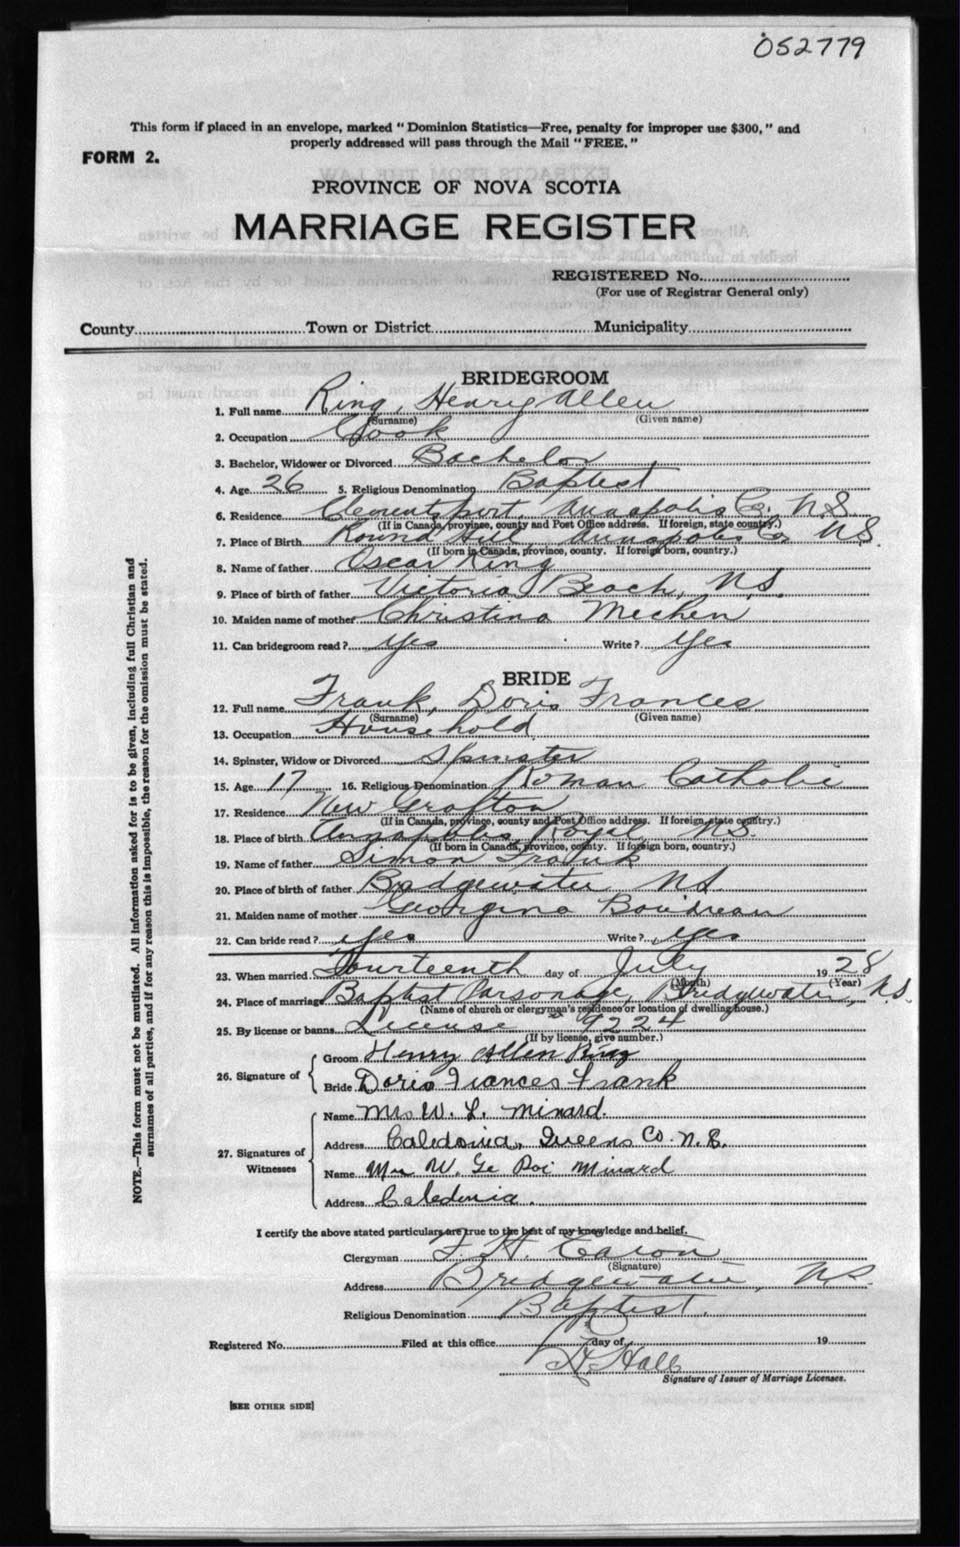 052779
This form if placed in an envelope, marked "Dominion Statistics—Free, penalty for improper use $300," and
properly addressed will pass through the Mail "FREE."
FORM 2.
PROVINCE OF NOVA SCOTIA
MARRIAGE REGISTER
REGISTERED No.
(For use of Registrar General only)
County Town or District Municipality
BRIDEGROOM
1. Full name Ring, Henry Allen
(Surname) (Given name)
2. Occupation Cook
3. Bachelor, Widower or Divorced Bachelor
4. Age 26 5. Religious Denomination Baptist
6. Residence Clementsport, Annapolis Co. N.S.
(If in Canada, province, county and Post Office address. If foreign, state country.)
7. Place of Birth Round Hill, Annapolis Co N.S.
(If born in Canada, province, county. If foreign born, country.)
8. Name of father Oscar Ring
9. Place of birth of father Victoria Beach, N.S.
10. Maiden name of mother Christina Mechen
11. Can bridegroom read? yes Write? yes
BRIDE
12. Full name Frank, Doris Frances
(Surname) (Given name)
13. Occupation Household
14. Spinster, Widow or Divorced Spinster
15. Age 17 16. Religious Denomination Roman Catholic
17. Residence New Grafton
(If in Canada, province, county and Post Office address. If foreign, state country.)
18. Place of birth Annapolis Royal, N.S.
(If born in Canada, province, county. If foreign born, country.)
19. Name of father Simon Frank
20. Place of birth of father Bridgewater N.S.
21. Maiden name of mother Georgina Boudreau
22. Can bride read? yes Write? yes
23. When married Fourteenth day of July 1928
(Month) (Year)
24. Place of marriage Baptist Parsonage, Bridgewater, N.S.
(Name of church or clergyman's residence or location of dwelling house.)
25. By license or banns License 9224
(If by license, give number.)
26. Signature of
Groom Henry Allen Ring
Bride Doris Frances Frank
27. Signatures of Witnesses
Name Mrs W. L. Minard.
Address Caledonia, Queens Co. N.S.
Name W. Minard
Address Caledonia.
I certify the above stated particulars are true to the best of my knowledge and belief.
Clergyman
(Signature)
Address Bridgewater, N.S.
Religious Denomination Baptist.
Registered No. Filed at this office day of 19
Hall
Signature of Issuer of Marriage Licenses.
[SEE OTHER SIDE]
NOTE.—This form must not be mutilated. All information asked for is to be given, including full Christian and
surnames of all parties, and if for any reason this is impossible, the reason for the omission must be stated.